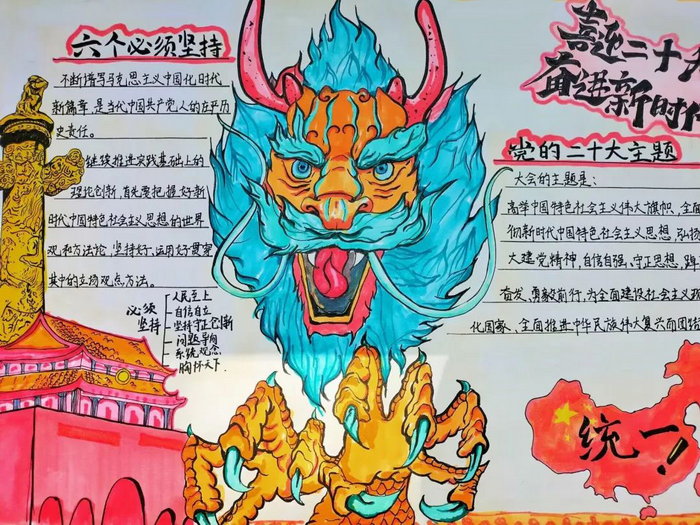 六个必须坚持
不断谱写马克思主义中国化时代
新篇章,是当代中国共产党人的庄严历
史责任。
继续推进实践基础上的
理论创新,首先要把握好新
时代中国特色社会主义思想的世界
观和方法论,坚持好、运用好贯穿
其中的立场观点方法。
必须
坚持
人民至上
自信自立
坚持守正创新
问题导向
系统观念
胸怀天下
喜迎二十大
奋进新时代
党的二十大主题
大会的主题是:
高举中国特色社会主义伟大旗帜,全面
彻新时代中国特色社会主义思想,弘扬
大建党精神,自信自强、守正思想,踔
奋发、勇毅前行,为全面建设社会主义现
化国家、全面推进中华民族伟大复兴而团结
统一!